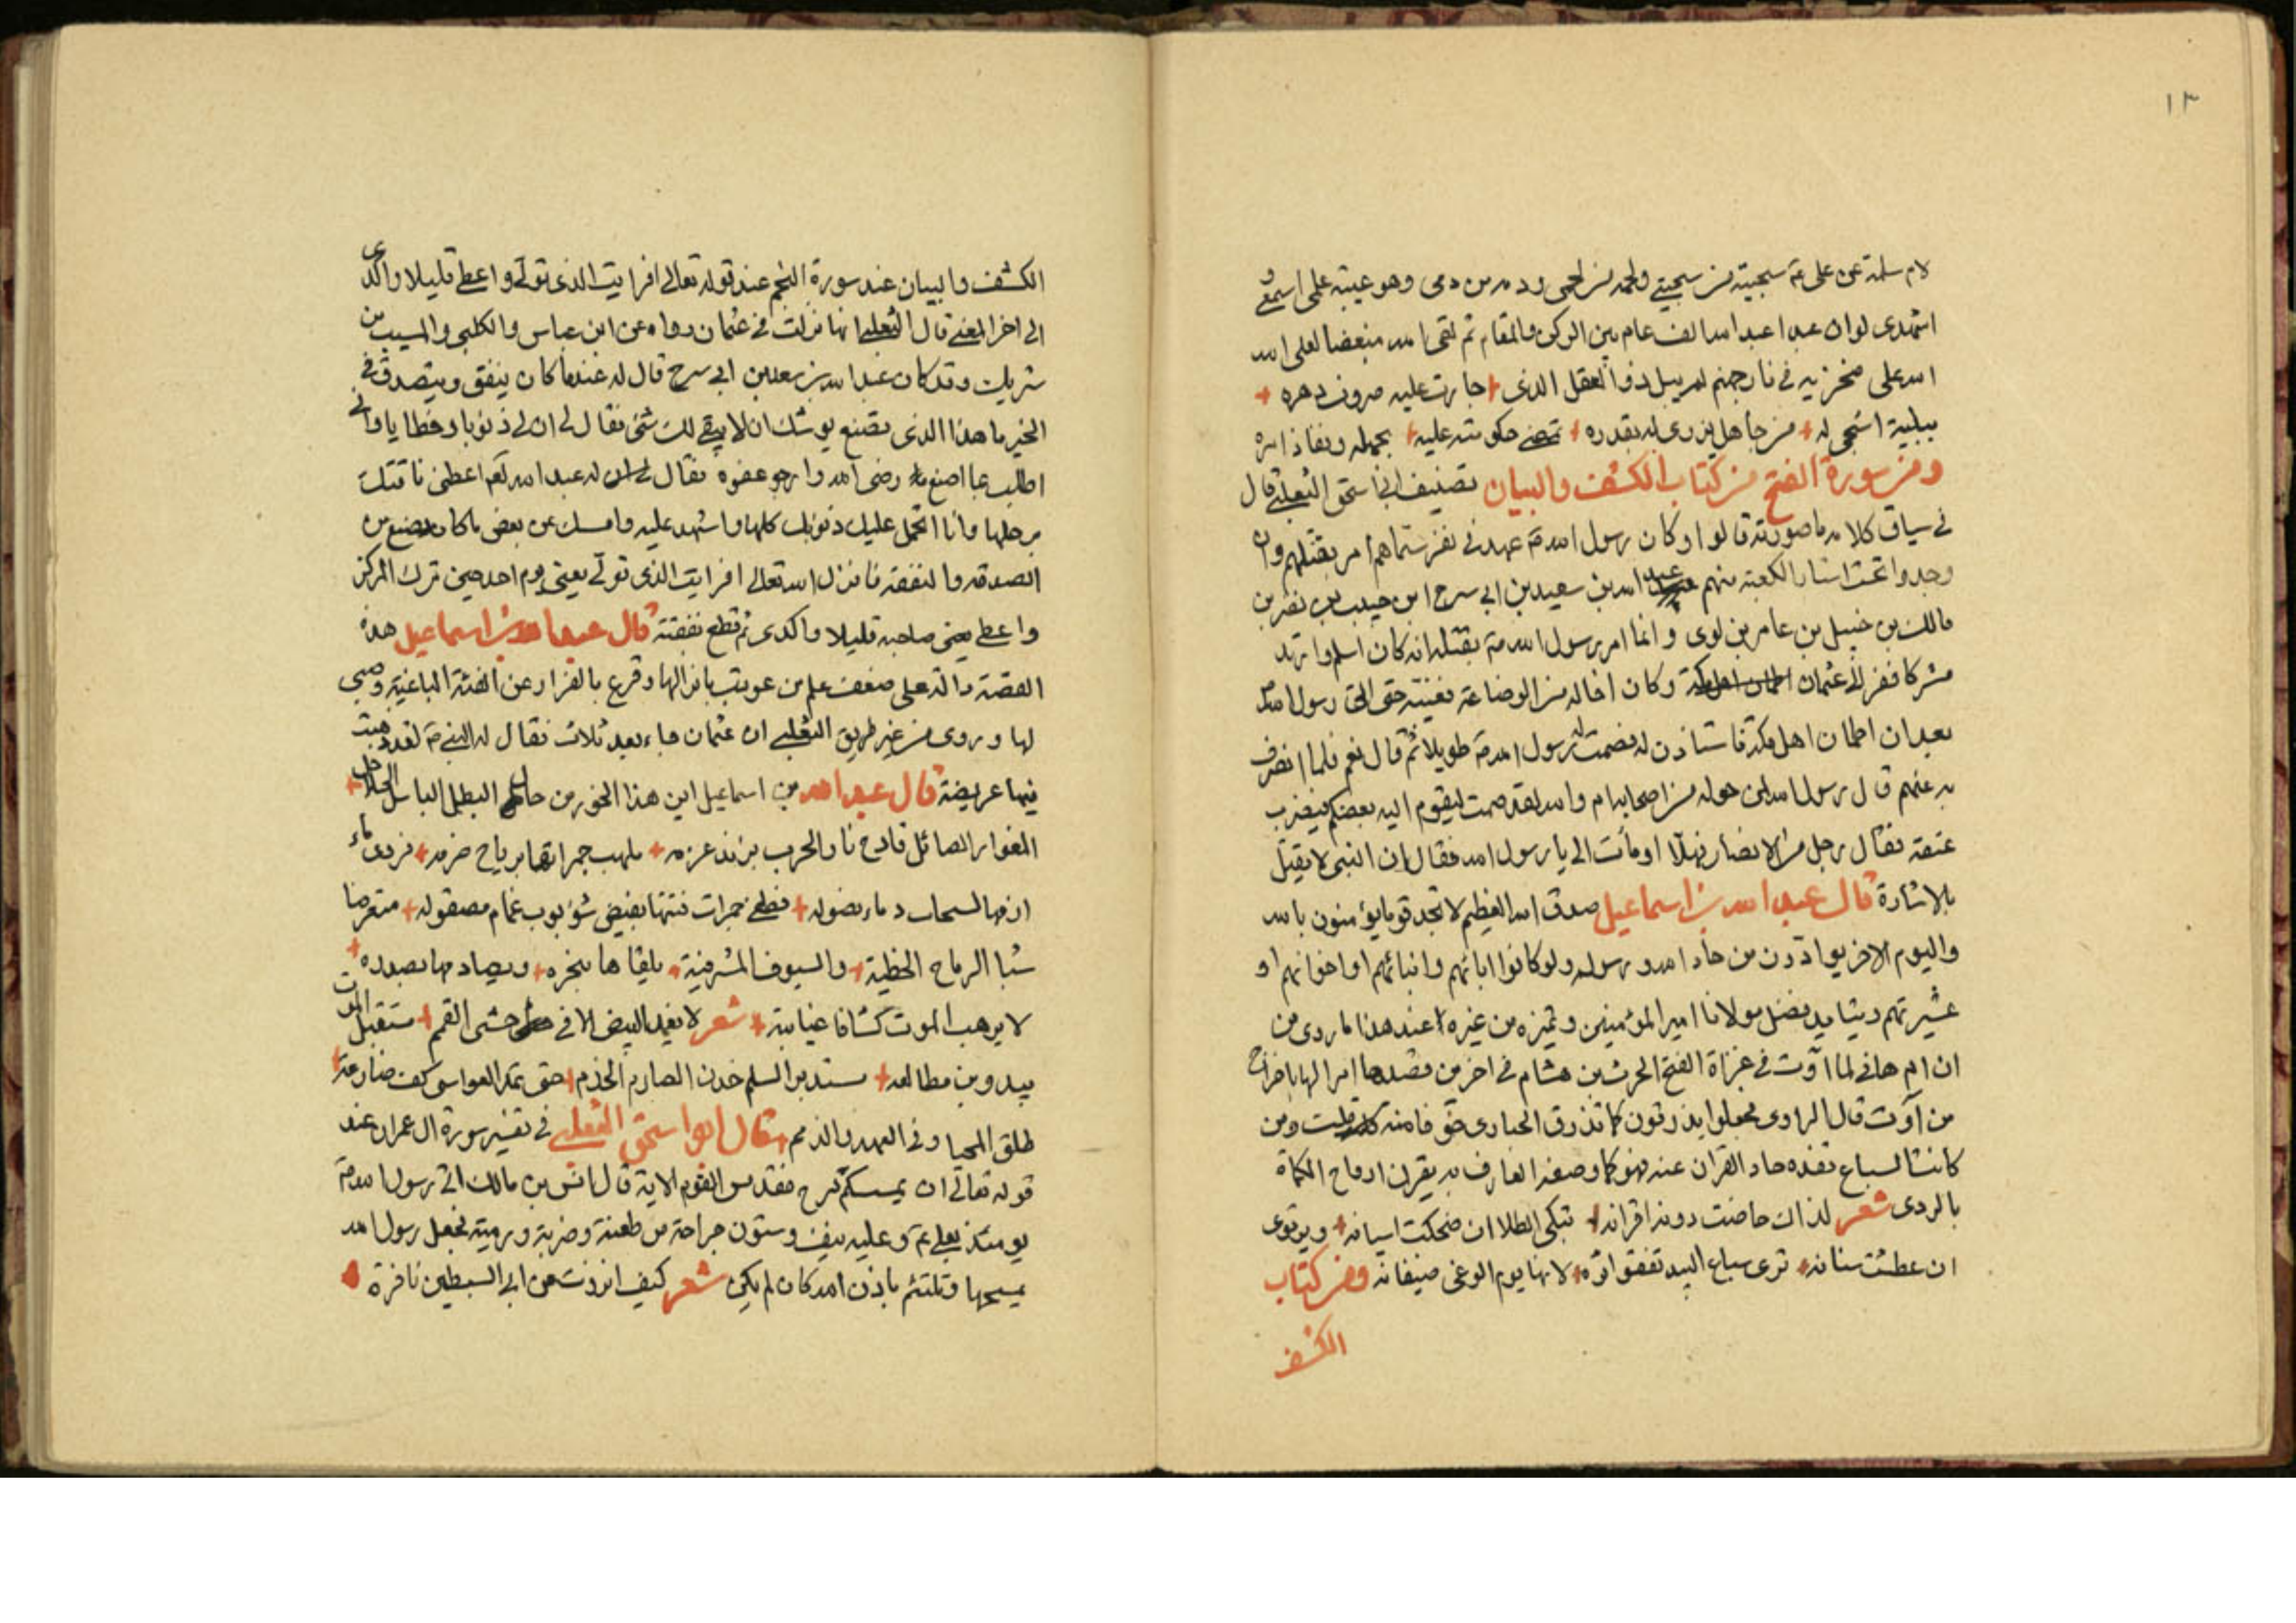 ١٣
لام سلمة عن على ع سجيته من سجيتى ولحمه من لحمى ودمه من دمى وهو عيبة علمى اسمعى و
اشهدى لو ان عبدا عبد الله الف عام بين الركن والمقام ثم لقى الله مبغضا لعلى اكبه
الله على منخريه فى نار جهنم لم يبل ذو العقل الذى جارت عليه صروف دهره
ببلية اشجى له من جاهل يزرى له بقدره تمضى حكومته عليه بجهله ونفاذ امره
ومن سورة الفتح من كتاب الكشف والبيان تصنيف ابى اسحق الثعلبى قال
فى سياق كلامه ما صورته قالوا وكان رسول الله ص عهد فى نفر سماهم امر بقتلهم وان
وجدوا تحت استار الكعبة منهم عبد الله بن سعيد بن ابى سرح ابن حبيب بن نصر بن
مالك بن حنبل بن عامر بن لوى وانما امر رسول الله ص بقتله انه كان اسلم وارتد
مشركا ففر الى عثمان وكان اخا له من الرضاعة فغيبه حتى اتى رسول الله ص
بعد ان اطمان اهل مكة فاستاذن له فصمت له رسول الله ص طويلا ثم قال نعم فلما انصرف
به عثمن قال رسول الله لمن حوله من اصحابه ام والله لقد صمت ليقوم اليه بعضكم فيضرب
عنقه فقال رجل من الانصار فهلا اومأت الى يا رسول الله فقال ان النبى لا يقتل
بالاشارة قال عبد الله بن اسماعيل صدق الله العظيم لا تجد قوما يؤمنون بالله
واليوم الاخر يوادون من حاد الله ورسوله ولو كانوا اباءهم وابنائهم او اخوانهم او
عشيرتهم ويشابه بفضل مولانا امير المؤمنين وتميزه من غيره عند هذا ما روى من
ان ام هانى لما آوت فى غزاة الفتح الحرث بن هشام فى اخرين قصدها امرا لها باخراج
من آوت قال الراوى فجعلوا يذرقون كما تذرق الحبارى حتى فامنه ومن
كانت السباع تفده حاد القران عنه فهو كما وصفه العارف به يقرن ارواح الكماة
بالردى شعر لذاك حاضت دونه اقرانه تبكى الطلا ان ضحكت اسيافه ويرتوى
ان عطشت سنانه ترى سباع البيد تقفو اثره لانها يوم الوغى ضيفانه ومن كتاب
الكشف
الكشف والبيان عند سورة النجم عند قوله تعالى افرايت الذى تولى واعطى قليلا واكدى
الى اخر المعنى قال الثعلبى انها نزلت فى عثمان رواه عن ابن عباس والكلبى والمسيب بن
شريك وقد كان عبد الله بن سعد بن ابى سرح قال له عندما كان ينفق ويتصدق فى
الخير ما هذا الذى تصنع يوشك ان لا يبقى لك شئ فقال لى ان لى ذنوبا وخطايا وانى
اطلب بما اصنع رضى الله وارجو عفوه فقال له عبد الله نعم اعطنى ناقتك
برحلها وانا اتحمل عليك ذنوبك كلها واشهد عليه وامسك عن بعض ما كان يصنع من
الصدقه والنفقه فانزل الله تعالى افرايت الذى تولى يعنى يوم احد حين ترك المركز
واعطى يعنى صاحبه قليلا واكدى ثم قطع نفقته قال عبد الله بن اسماعيل هذه
القصة دالة على ضعف علم من عوتب بانزالها وقرع بالفرار عن الفئة الباغية وهى
لها وروى من غير طريق الثعلبى ان عثمان جاء بعد ثلاث فقال له النبى ص لقد ذهبت
فيها عريضة قال عبد الله بن اسماعيل اين هذا الخور من حال البطل الباسل الحلاحل
المغوار الصائل قادح نار الحرب بزند عزمه ملهب جمراتها برياح ضربه فردى ماء
ان فيها السحاب دماء نصوله فطفى جمرات فتنها بفيض شؤبوب غمام مصقوله متعرضا
شبا الرماح الخطية والسيوف المشرفية يلقاها بنحره ويصادمها بصدره
لا يرهب الموت كشافا غيابته شعر لا يغمد البيض الا فى حشى القمم مستقبل الموت
يبدو من مطالعه مستدبر السلم خدن الصارم الخذم حتى تمد العواسى كف ضارعة
طلق المحيا وفى العهد والذمم وقال ابو اسحق الثعلبى فى تفسير سورة ال عمران عند
قوله تعالى ان يمسسكم قرح فقد مس القوم الاية قال انس بن مالك اتى رسول الله ص
يومئذ بعلى ع وعليه نيف وستون جراحة من طعنة وضربة ورمية فجعل رسول الله
يمسحها وتلتئم باذن الله كان لم يكن شعر كيف انزوت عن ابى السبطين نافرة